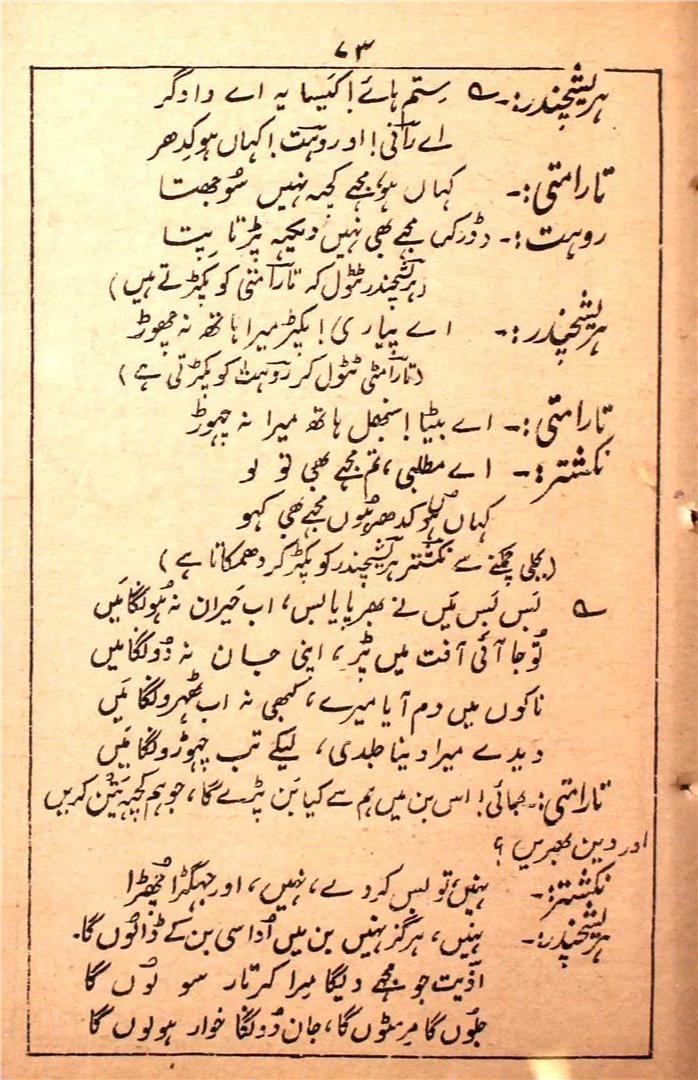 ۷۳
ہریشچندر:۔ ؎ ستم ہائے! کیسا یہ اے دادگر
اے رانی! او روہت! کہاں ہو کدھر
تارامتی:۔ کہاں ہو، مجھے کچہ نہیں سُوجھتا
روہت:۔ ڈر کر مجھے بھی نہیں دیکہہ پڑتا پتا
(ہریشچندر ٹٹول کہ تارامتی کو پکڑتے ہیں)
ہریشچندر:۔ اے پیاری! پکڑ میرا ہاتھ نہ چھوڑ
(تارامتی ٹٹول کر روہت کو پکڑتی ہے)
تارامتی:۔ اے بیٹا! سنبھل ہاتھ میرا نہ چہوڑ
نکشتر:۔ اے مطلبی، تم مجہے بھی تو لو
کہاں ہو کدھر ہُوں مجہے بھی کہو
(بجلی چمکنے سے نکشتر ہریشچندر کو پکڑ کر دھمکاتا ہے)
؎ بَس بَس مَیں نے بھر پایا بس، اب حَیران نہ ہُولگا مَیں
تُو جا آئی آفت میں پڑ، اپنی جان نہ دُولگا میں
ناکوں میں دم آیا میرے، کبھی نہ اب ٹھہرولگا مَیں
دیدے میرا دینا جلدی، لیکے تب چہوڑولگا مَیں
تارامتی:۔ بھائی! اس بن میں ہم سے کیا بَن پڑے گا، جو ہم کچہہ یَتن کریں
اور دین بھریں؟
نکشتر:۔ ہنیں، تو بس کردے، نہیں، اور جہگڑا چُھڑا
ہریشچندر:۔ ہنیں، ہرگز ہنیں بن میں اُداسی بن کے ڈالُوں گا۔
اذّیت جو مجھے دیگا مِرا کرتار سو لُوں گا
جلُوں گا مرمٹوں گا، جان دُولگا خوار ہولوں گا